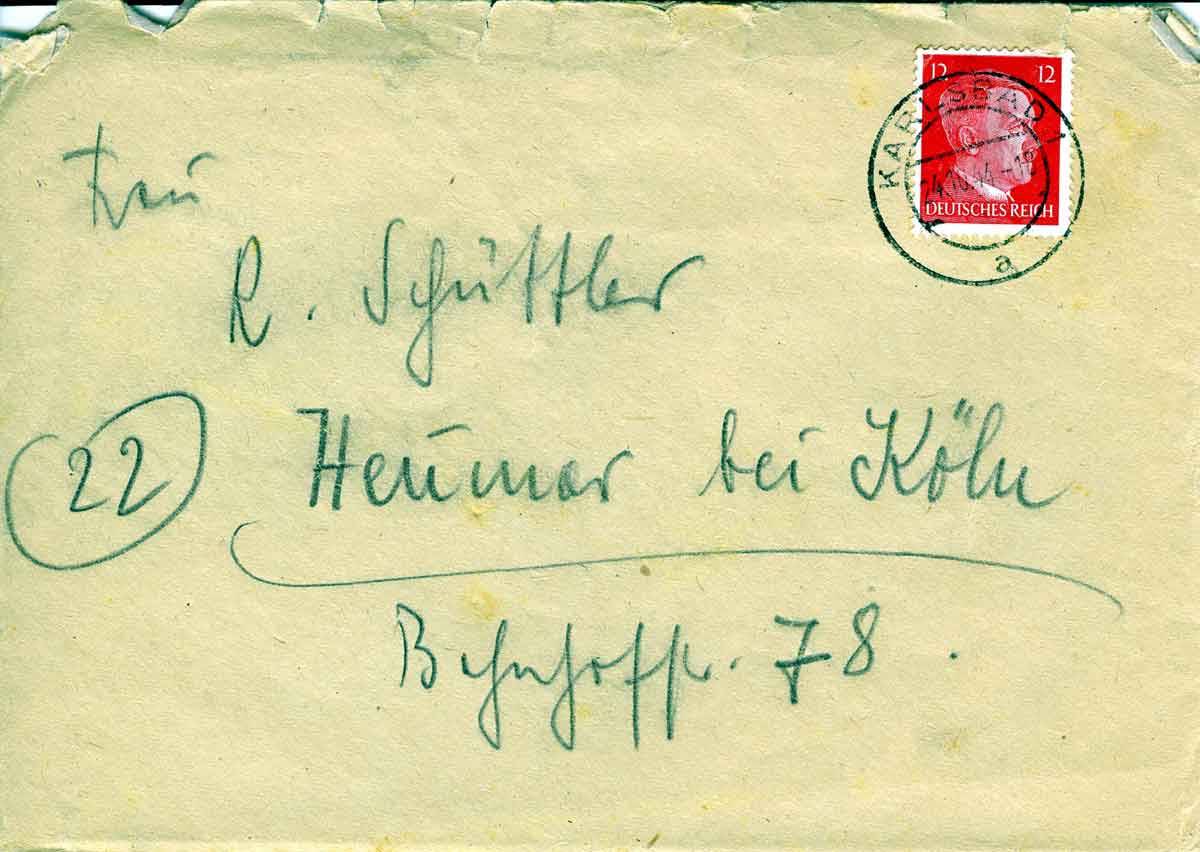 12 12
KARLSBAD 1
24.10.44.-18
DEUTSCHES REICH
a
Frau
R. Schüttler
22
Heumar bei Köln
Bahnhofstr. 78.